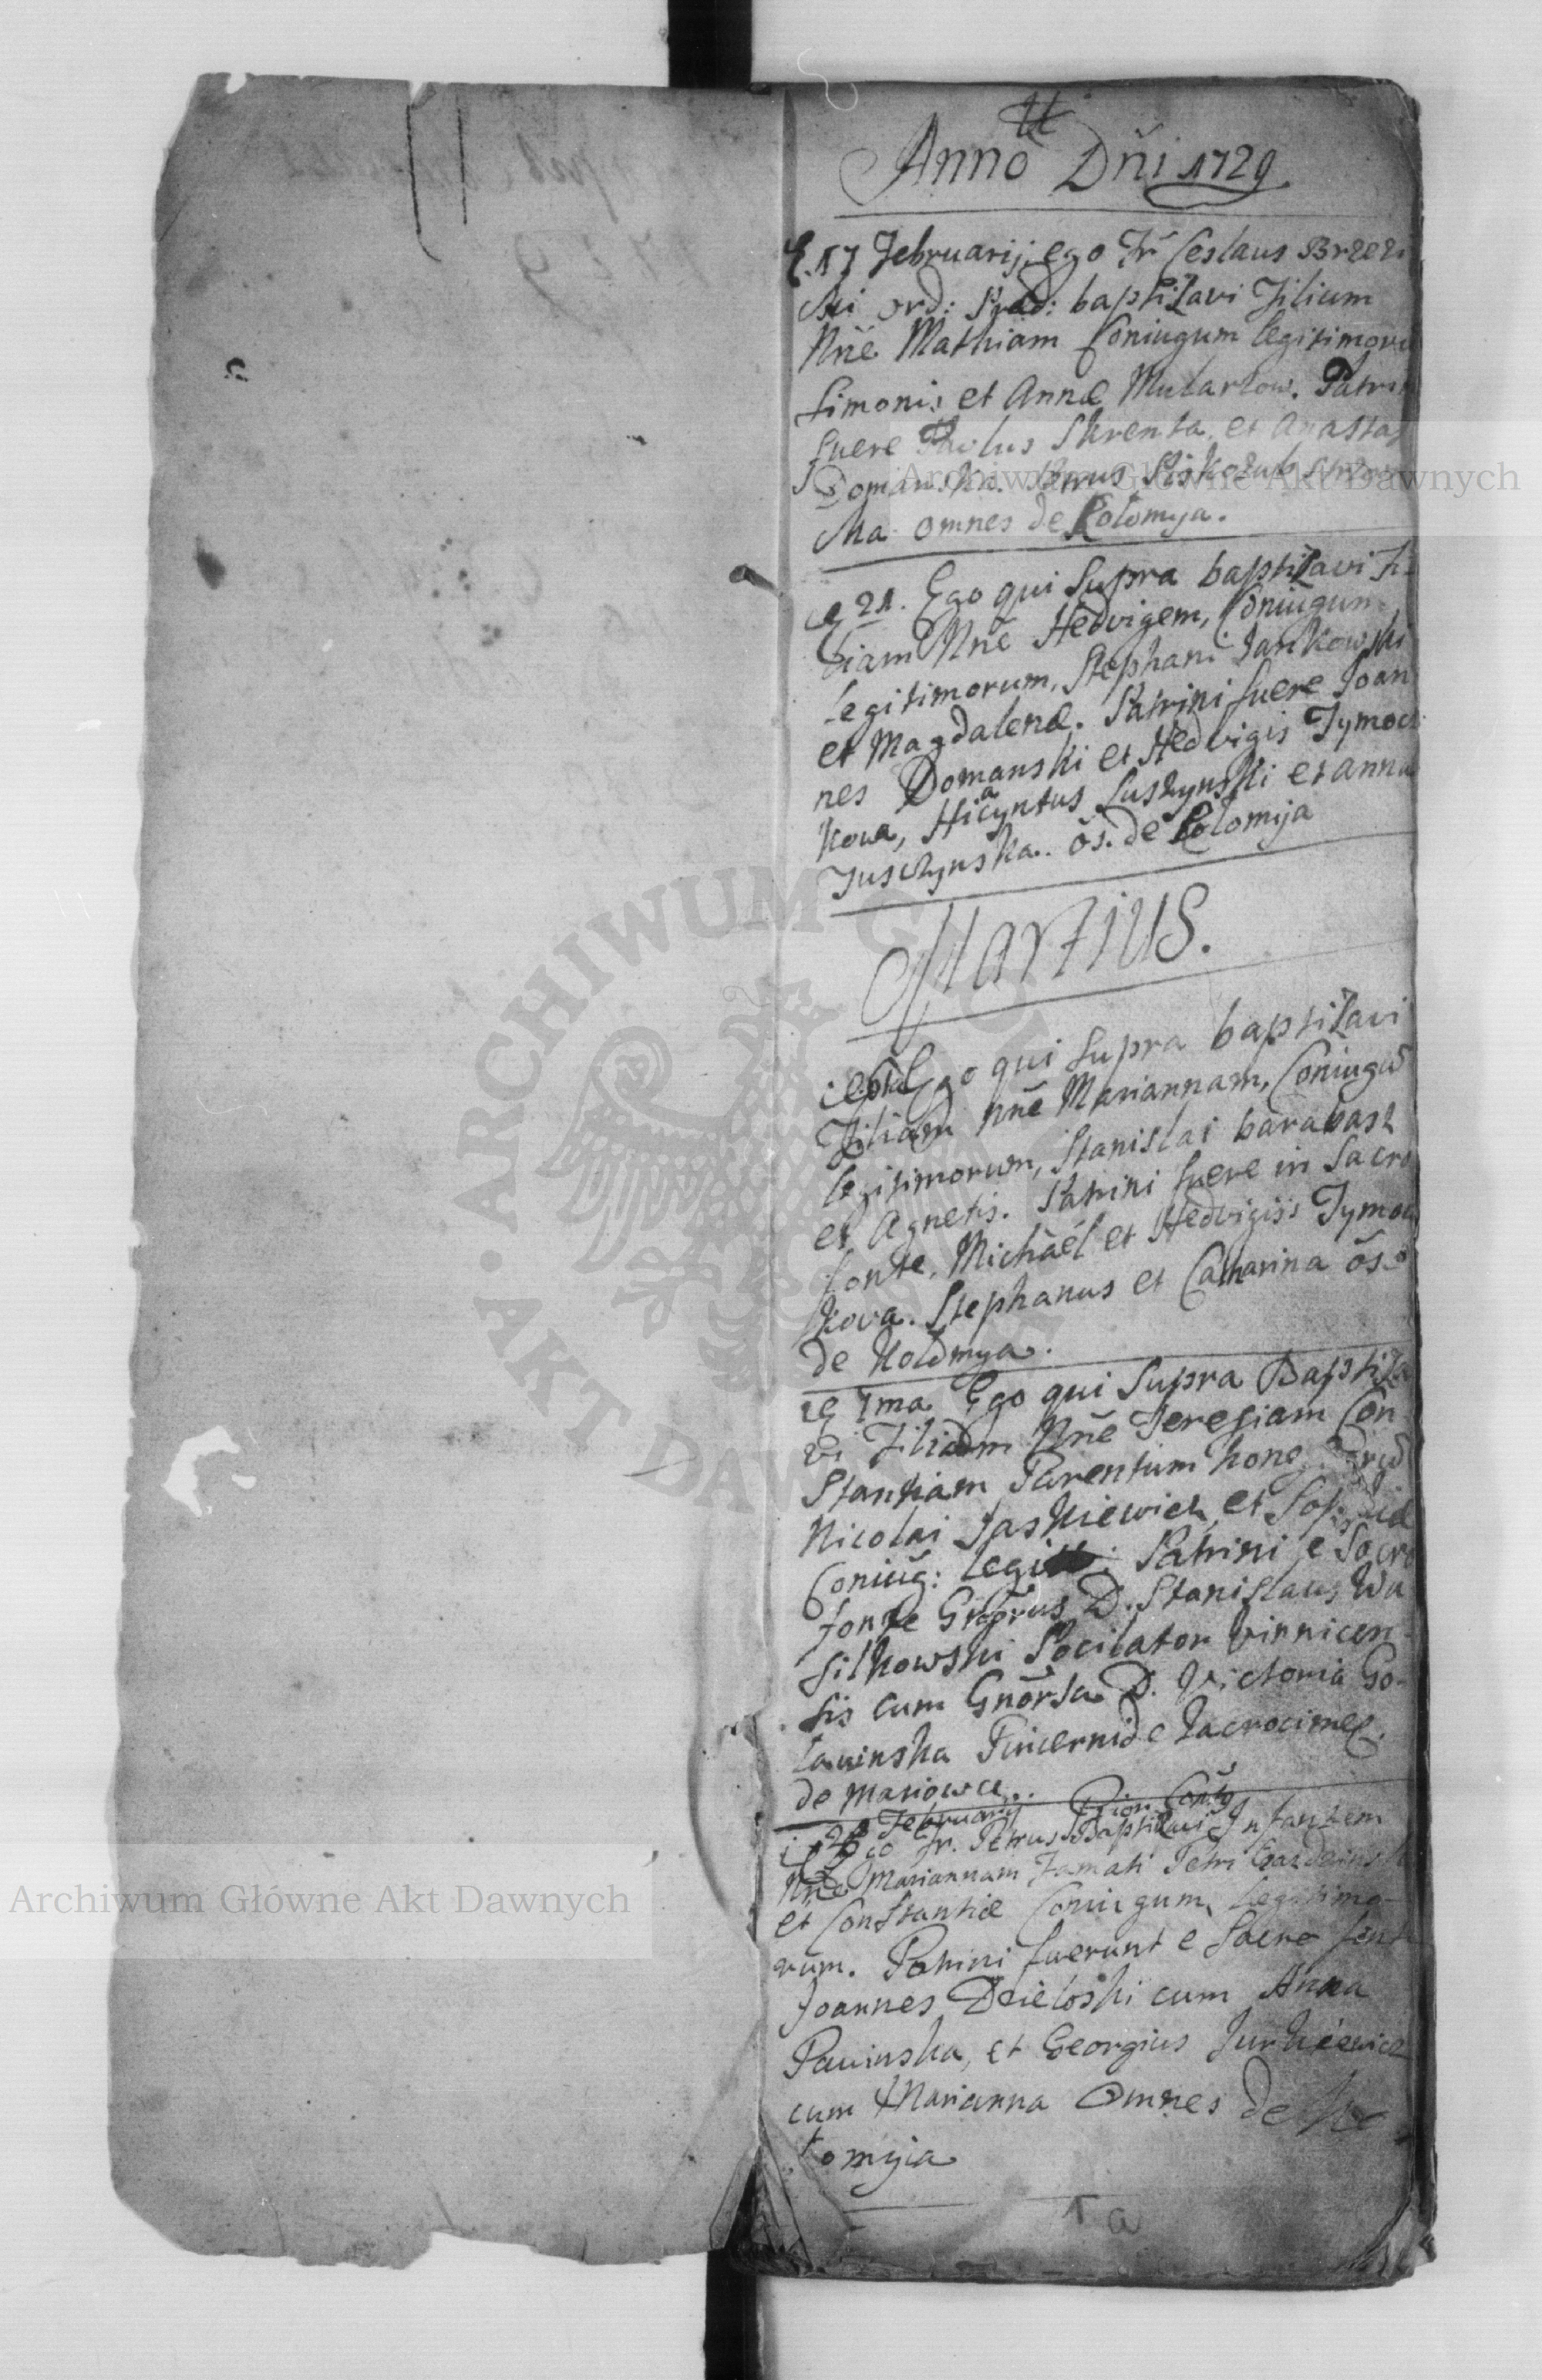 Anno Dñi 1729
17 Februarij ego Fr Ceslaus Brzezi
ski ord: Præd: baptizavi Filium
Nñe Mathiam Coniugum legitimoru
Simonis et Annæ Mularzow. Patrin
fuere Paulus Skrenta et Anastas
Domanska. Petrus
ska omnes de Colomya.
21. Ego qui supra baptizavi Fi-
liam Nñe Hedvigem, Coniugum
legitimorum, Stephani Jankowski
et Magdalenæ. Patrini fuere Joan
nes Domanski et Hedvigis Tymoch
kowa, Hiacyntus Luszynski et Anna
Juszczynska. õs. de Colomija
Martius.
Ego qui supra baptizavi
Filiam Nñe Mariannam, Coniugũ
legitimorum, Stanislai barabasz
et Agnetis. Patrini fuere in Sacro
fonte, Michaël et Hedvigis Tymoch
kova. Stephanus et Catharina õs
de Kolomya.
1ma Ego qui supra Baptiza
vi Filiam Nñe Teresiam Con
stantiam Parentum
Nicolai Jaskiewicz et
Coniug: legit: Patrini e Sacro
fonte Gñosus D. Stanislaus Wa
silkowski Pocilator Vinnicen-
sis cum Gñosa D. Victoria Go-
lawinska Pincernide Zacrocimes.
de Mariowce.
28 Februarij Prior Conty
Ego Fr. Petrus Baptizavi Infantem
Nñe Mariannam Famati Petri
et Constantiæ Coniugum Legitimo-
rum. Patrini fuerunt e Sacro font
Joannes Dzieloski cum Anna
Pawinska, et Georgius Jurkiewicz
cum Marianna Omnes de Ko
lomyia
1 a
Archiwum Główne Akt Dawnych
Archiwum Główne Akt Dawnych
ARCHIWUM GŁÓWNE AKT DAWNYCH